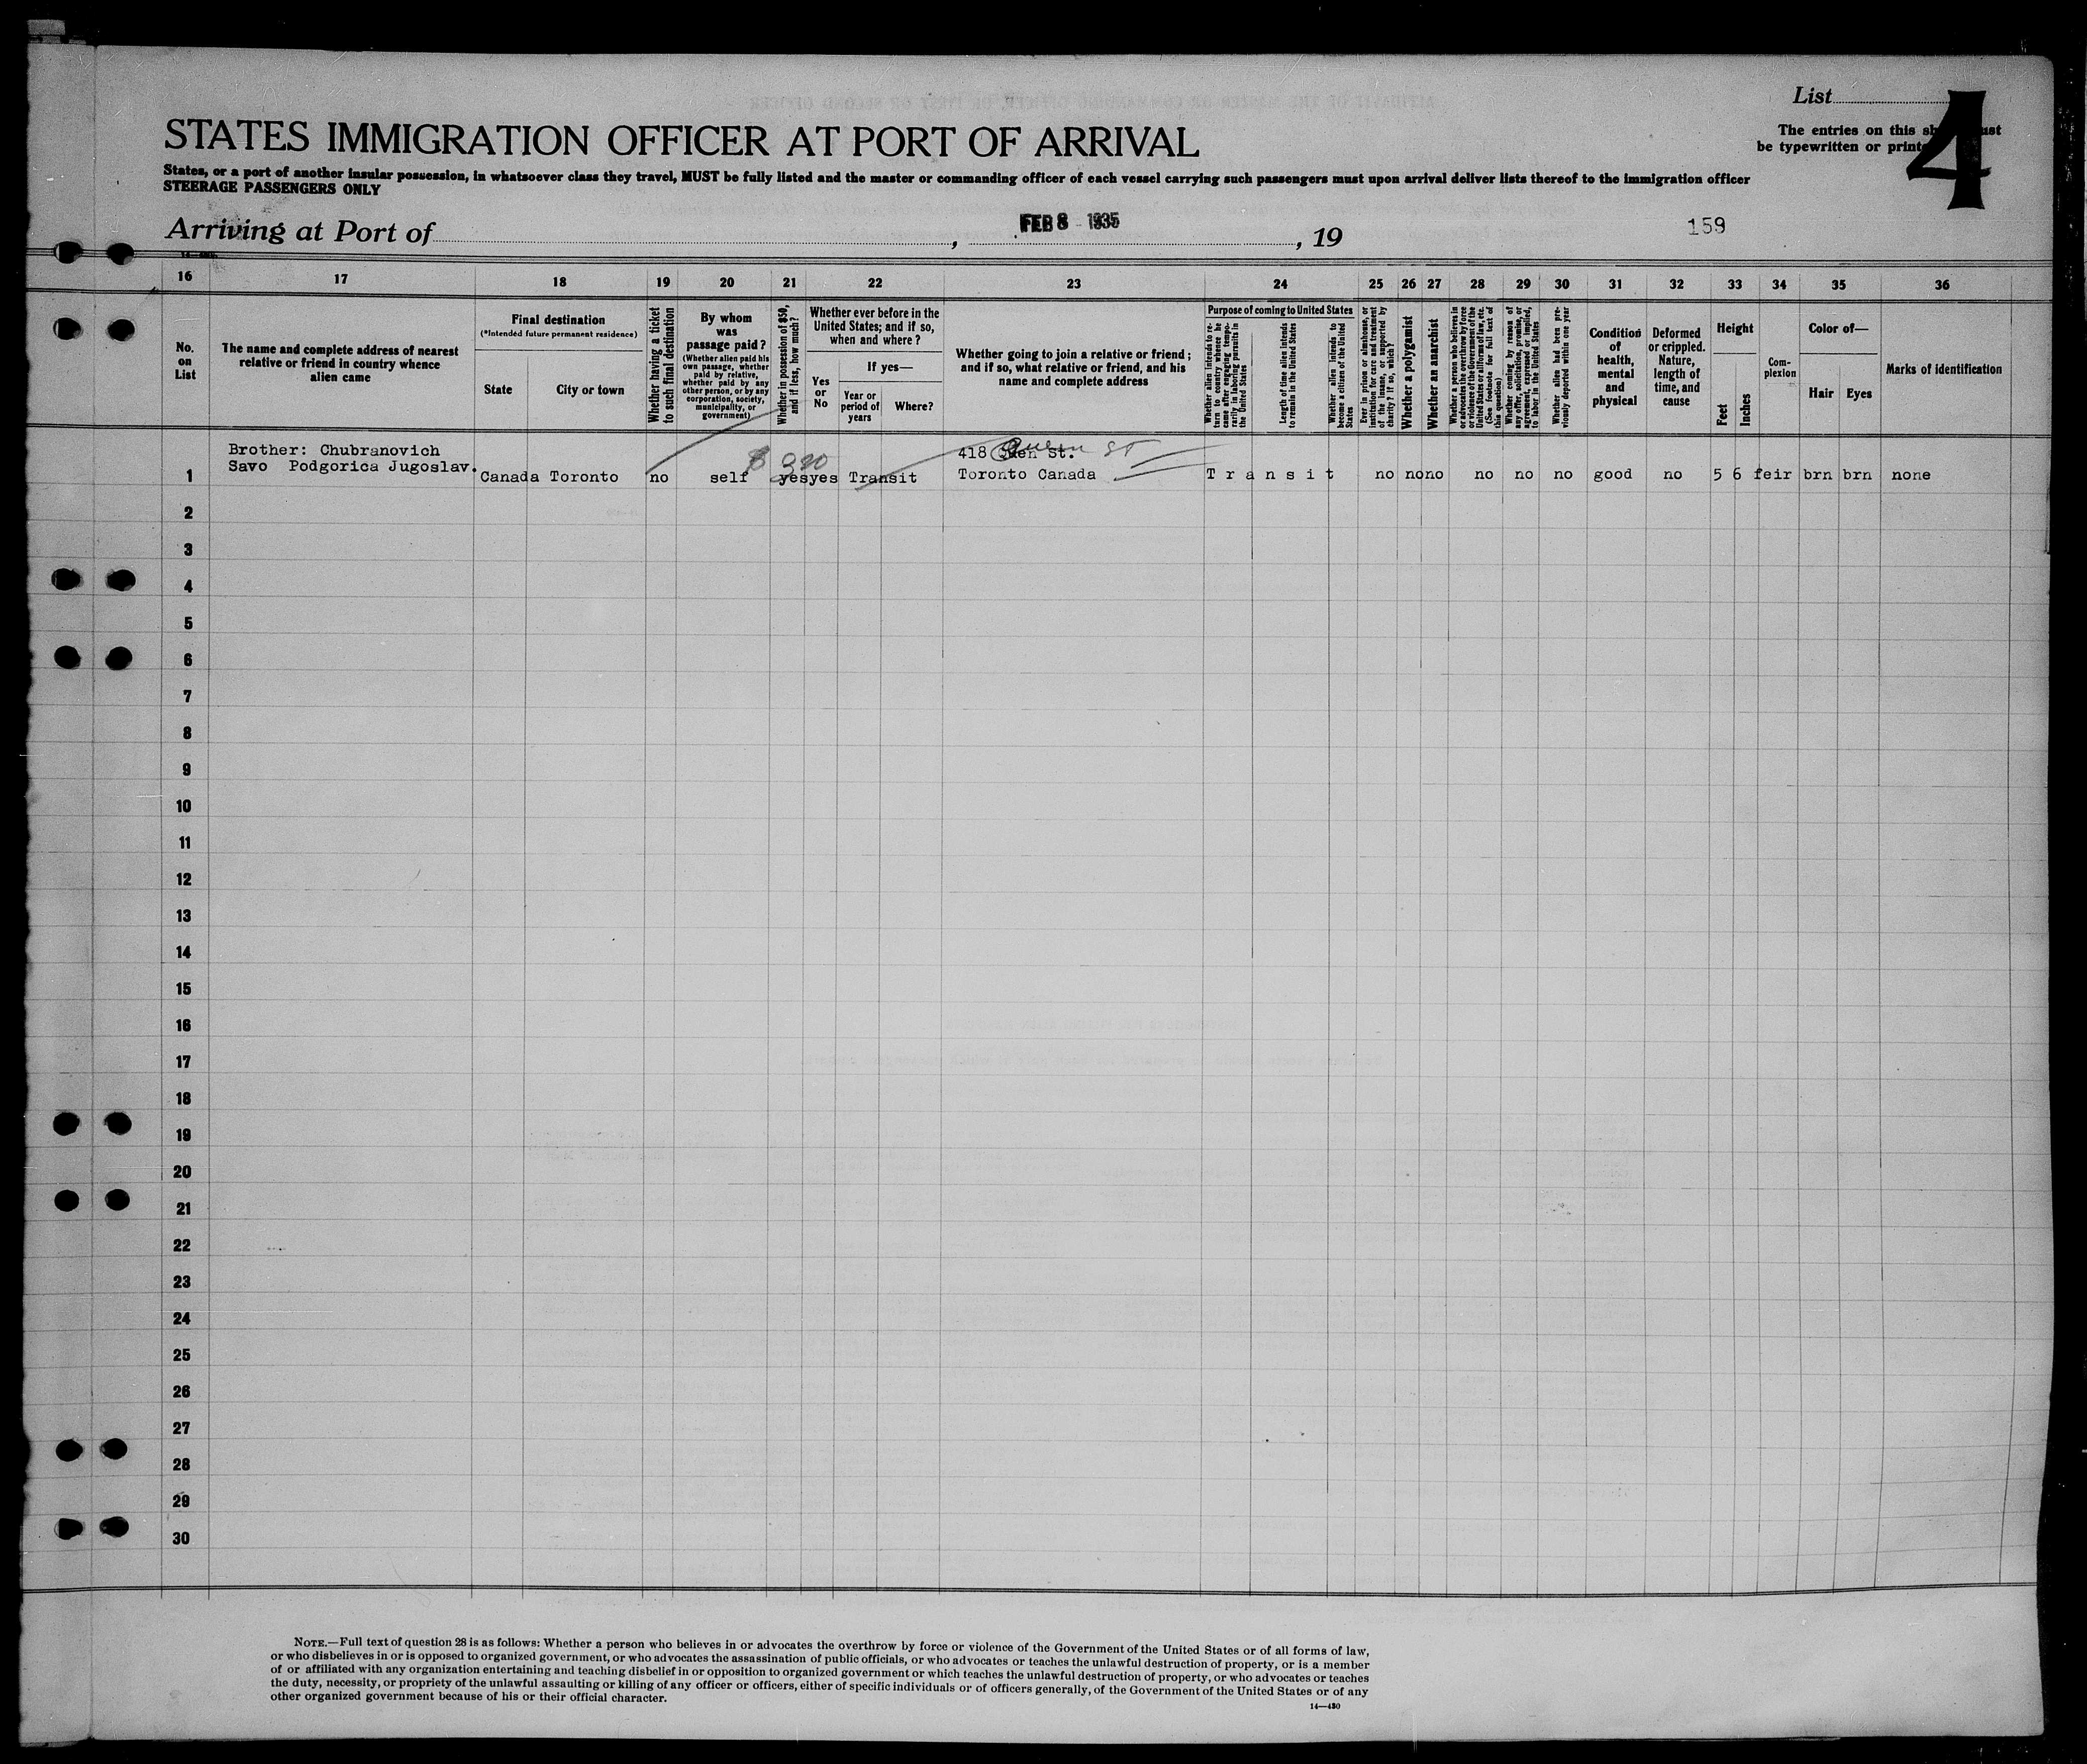 List
4
The entries on this
be typewritten or
STATES IMMIGRATION OFFICER AT PORT OF ARRIVAL
States, or a port of another insular possession, in whatsoever class they travel, MUST be fully listed and the master or commanding officer of each vessel carrying such passengers must upon arrival deliver lists thereof to the immigration officer
STEERAGE PASSENGERS ONLY
Arriving at Port of , FEB 8 - 1935 , 19
159
16 17 18 19 20 21 22 23 24 25 26 27 28 29 30 31 32 33 34 35 36
No.
on
List
The name and complete address of nearest
relative or friend in country whence
alien came
Final destination
(*Intended future permanent residence)
State
City or town
Whether having a ticket
to such final destination
By whom
was
passage paid?
(Whether alien paid his
own passage, whether
paid by relative,
whether paid by any
other person, or by any
corporation, society,
municipality, or
government)
Whether in possession of $50,
and if less, how much?
Whether ever before in the
United States; and if so,
when and where?
Yes
or
No
If yes—
Year or
period of
years
Where?
Whether going to join a relative or friend;
and if so, what relative or friend, and his
name and complete address
Purpose of coming to United States
Whether alien intends to re-
turn to country whence he
came after engaging tempo-
rarily in laboring pursuits in
the United States
Length of time alien intends
to remain in the United States
Whether alien intends to
become a citizen of the United
States
Ever in prison or almshouse, or
institution for care and treatment
of the insane, or supported by
charity? If so, which?
Whether a polygamist
Whether an anarchist
Whether a person who believes in
or advocates the overthrow by force
or violence of the Government of the
United States or all forms of law, etc.
(See footnote for full text of
this question)
Whether coming by reason of
any offer, solicitation, promise, or
agreement, expressed or implied,
to labor in the United States
Whether alien had been pre-
viously deported within one year
Condition
of
health,
mental
and
physical
Deformed
or crippled.
Nature,
length of
time, and
cause
Height
Feet
Inches
Com-
plexion
Color of—
Hair
Eyes
Marks of identification
Brother: Chubranovich
Savo Podgorica Jugoslav.
418 Queen St
St.
1 Canada Toronto no self yes yes Transit Toronto Canada Transit no no no no no no good no 5 6 feir brn brn none
2
3
4
5
6
7
8
9
10
11
12
13
14
15
16
17
18
19
20
21
22
23
24
25
26
27
28
29
30
NOTE.—Full text of question 28 is as follows: Whether a person who believes in or advocates the overthrow by force or violence of the Government of the United States or of all forms of law,
or who disbelieves in or is opposed to organized government, or who advocates the assassination of public officials, or who advocates or teaches the unlawful destruction of property, or is a member
of or affiliated with any organization entertaining and teaching disbelief in or opposition to organized government or which teaches the unlawful destruction of property, or who advocates or teaches
the duty, necessity, or propriety of the unlawful assaulting or killing of any officer or officers, either of specific individuals or of officers generally, of the Government of the United States or of any
other organized government because of his or their official character.
14—430